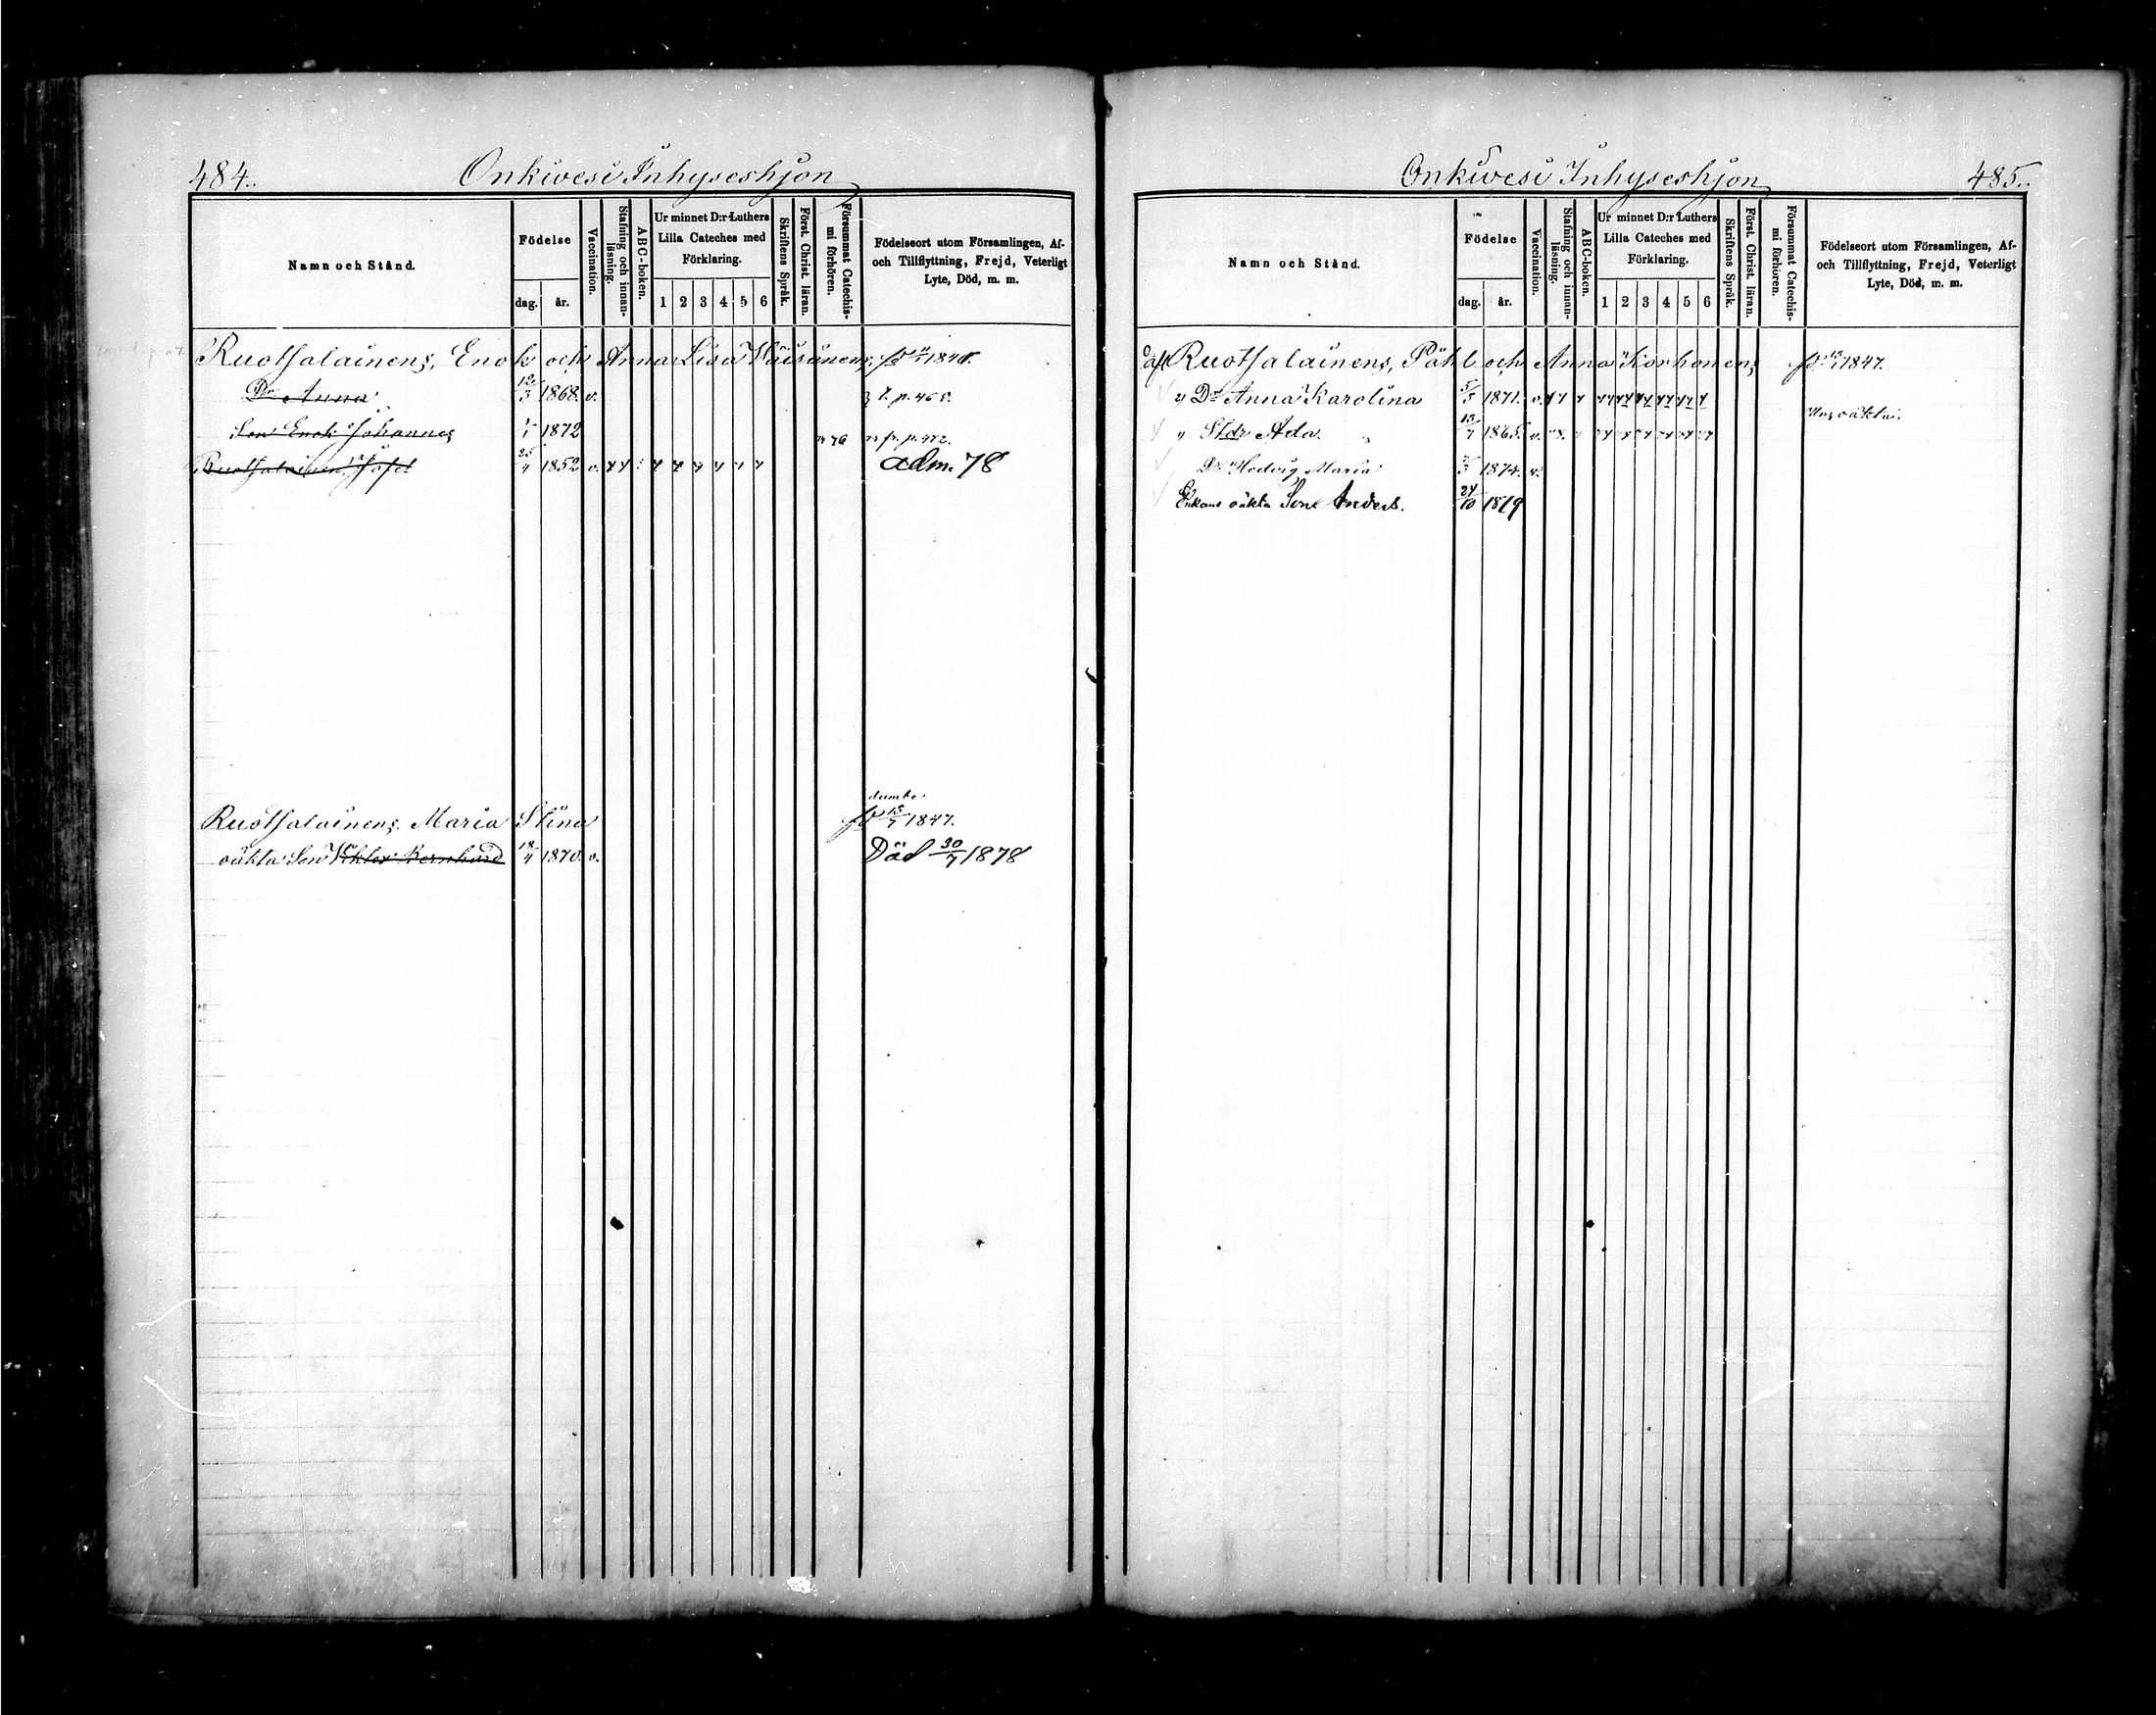 484.
Onkivesi Inhyseshjon
Namn och Stånd.
Födelse
dag.
år.
Vaccination.
Stafning och innanläsning.
ABC-boken.
Ur minnet D:r Luthers
Lilla Cateches med
Förklaring.
1 2 3 4 5 6
Skriftens Språk.
Först. Christ. läran.
Försummat Catechismi förhören.
Födelseort utom Församlingen, Af-
och Tillflyttning, Frejd, Veterligt
Lyte, Död, m. m.
Ruotsalainens, Enok och Anna Lisa Wäisänens,
Dr Anna 12/3 1868. v. p. 465.
Son Enok Johannes 1/1 1872 76 fr. p. 472.
Ruotsalainen, Josef 25/4 1852 v. adm. 78
dumbe
Ruotsalainens. Maria Stina 1847.
oäkta Son Viktor Bernhard 18/4 1870. v. Död 30/7 1878
Onkivesi Inhyseshjon
485.
Namn och Stånd.
Födelse
dag.
år.
Vaccination.
Stafning och innanläsning.
ABC-boken.
Ur minnet D:r Luthers
Lilla Cateches med
Förklaring.
1 2 3 4 5 6
Skriftens Språk.
Först. Christ. läran.
Försummat Catechismi förhören.
Födelseort utom Församlingen, Af-
och Tillflyttning, Frejd, Veterligt
Lyte, Död, m. m.
afl Ruotsalainens, Påhl och Anna Korhonens 1847.
Dr Anna Karolina 5/5 1871. v.
Stdr Ada. 13/7 1865. v. oäkta.
Dr Hedvig Maria 1874. v.
Enkans oäkta Son Anders. 24/10 1879